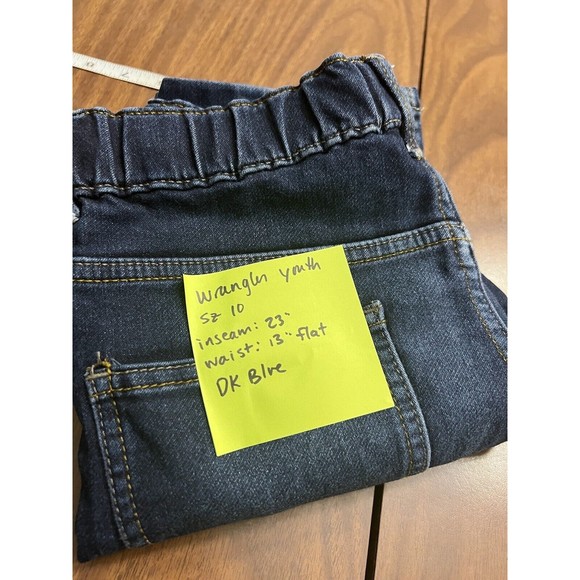 Wrangler youth
SZ 10
inseam: 23"
waist: 13" flat
DK Blue